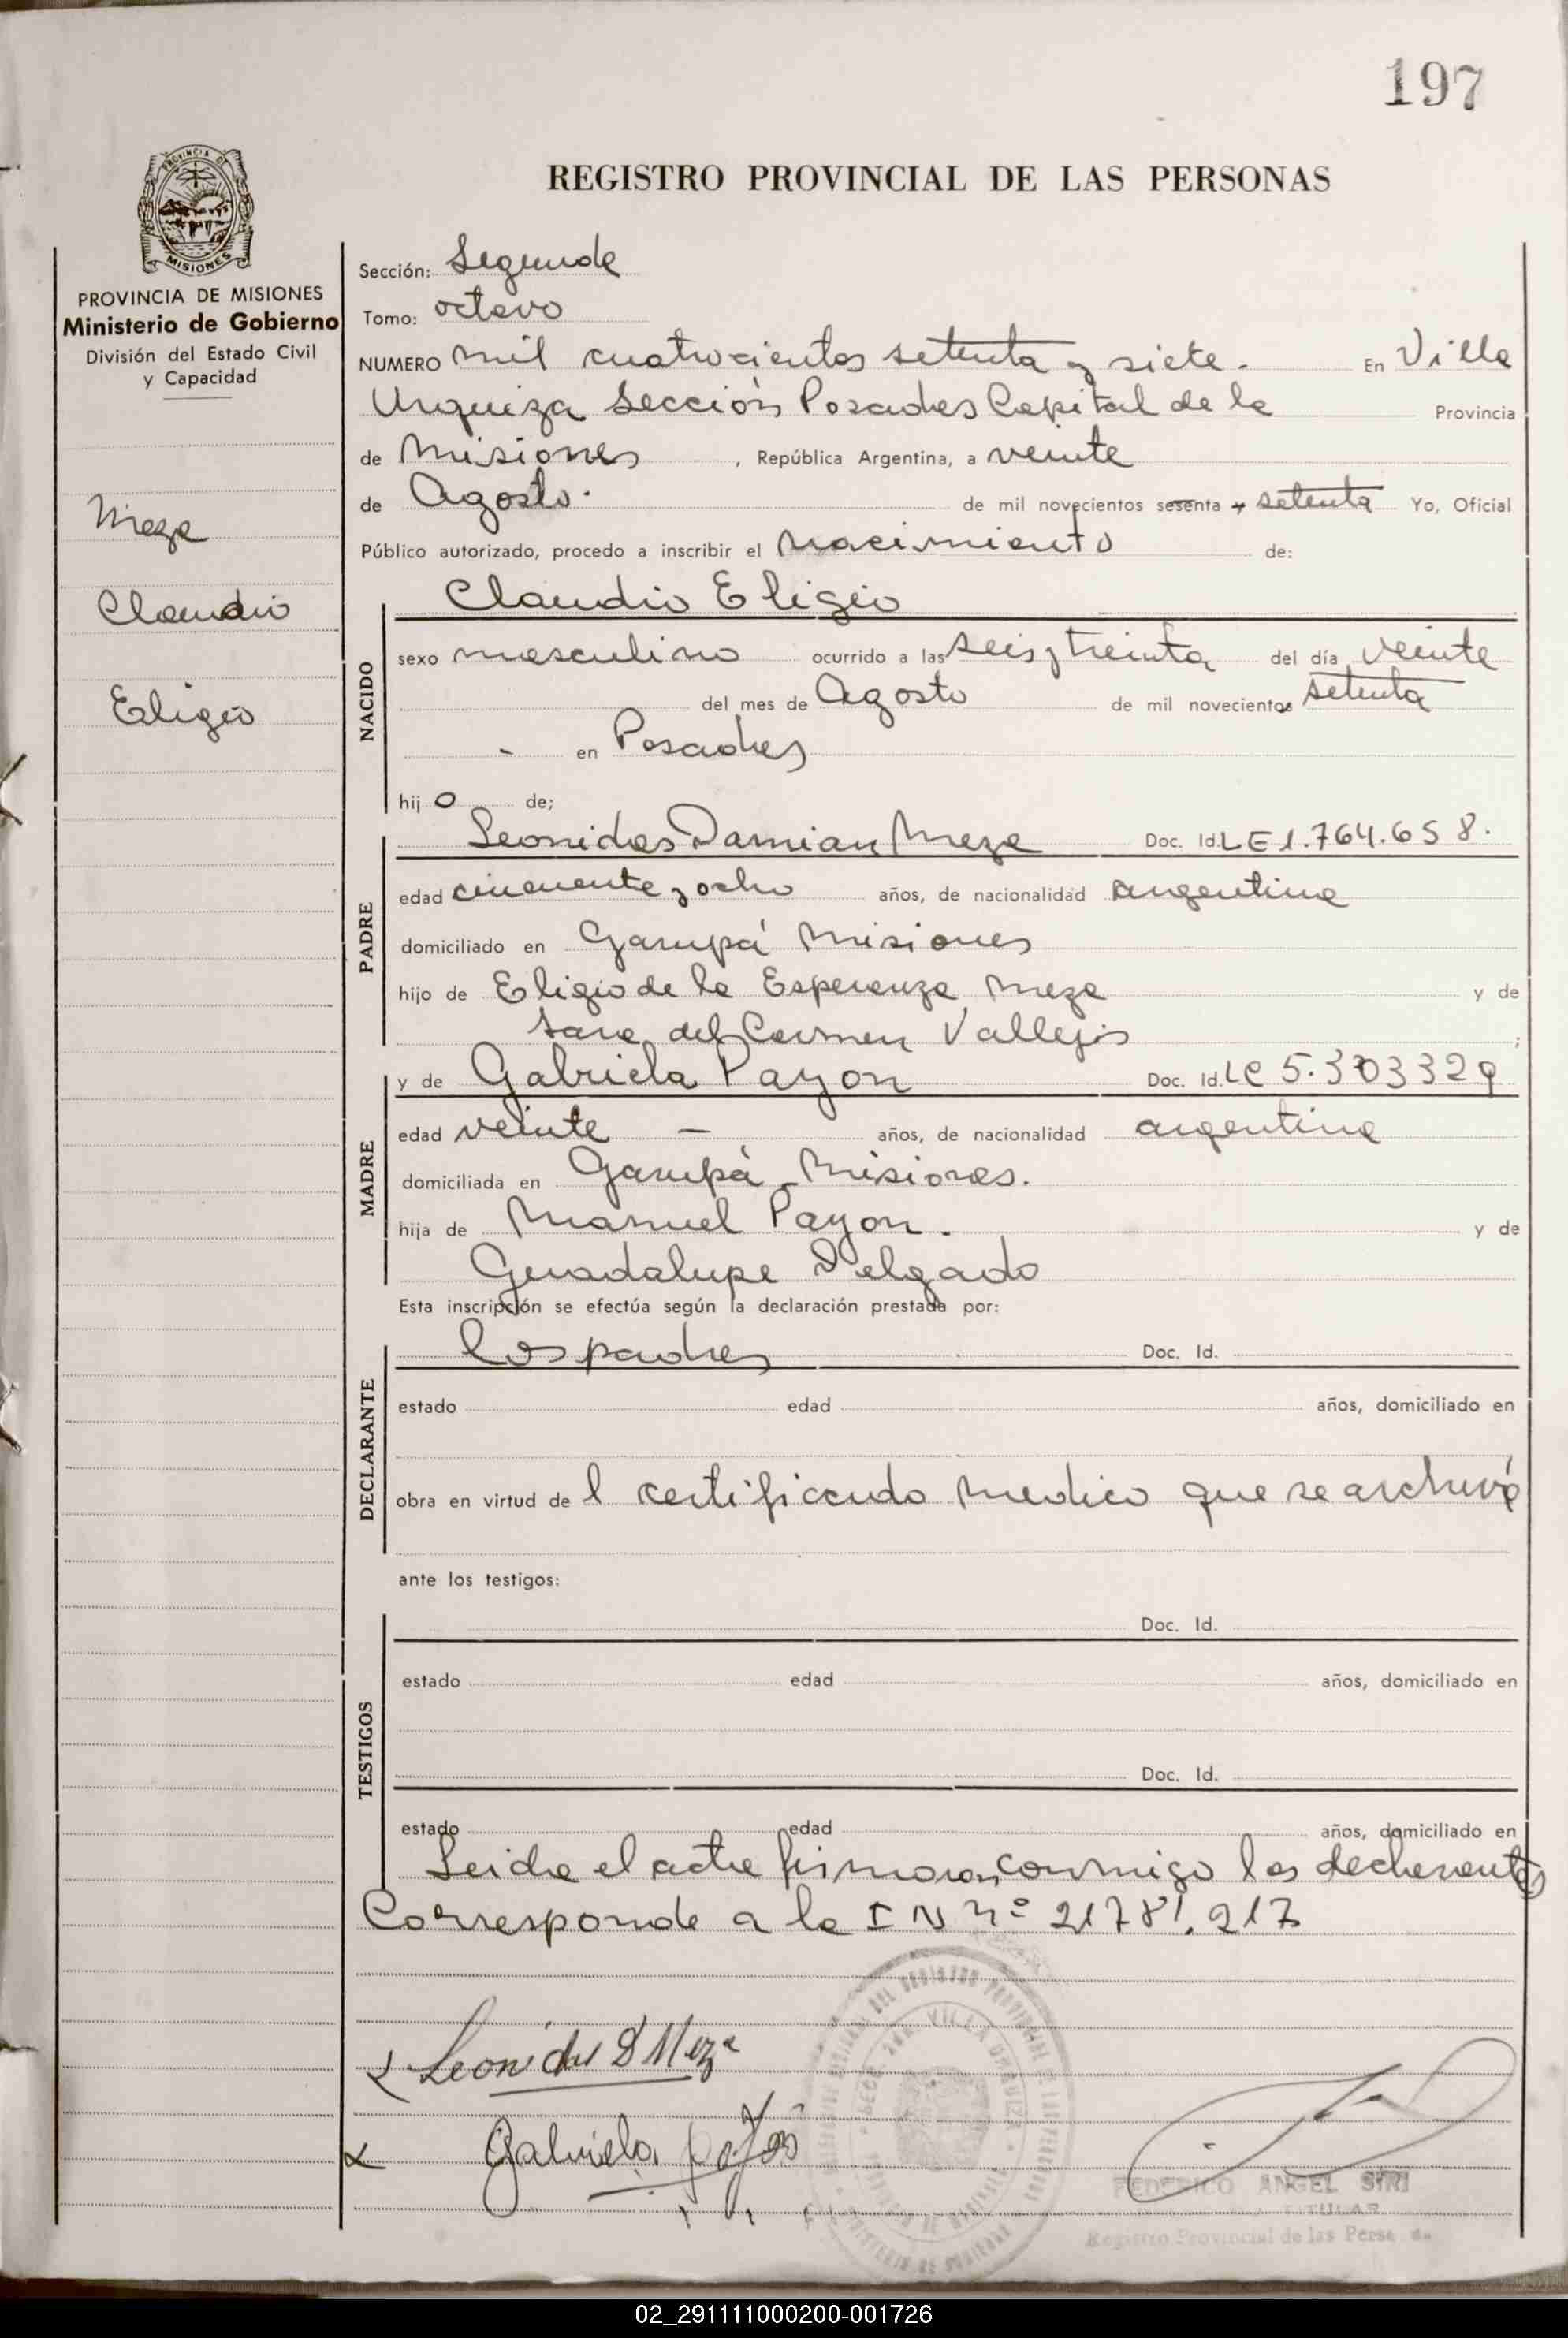 197
REGISTRO PROVINCIAL DE LAS PERSONAS
PROVINCIA DE MISIONES
MISIONES
PROVINCIA DE MISIONES
Ministerio de Gobierno
División del Estado Civil
y Capacidad
Meza
Claudio
Eligio
Sección: Segunda
Tomo: octavo
NUMERO mil cuatrocientos setenta y siete. En Villa
Urquiza Sección Posadas Capital de la Provincia
de Misiones, República Argentina, a veinte
de Agosto. de mil novecientos sesenta y setenta Yo, Oficial
Público autorizado, procedo a inscribir el nacimiento de:
NACIDO
Claudio Eligio
sexo masculino ocurrido a las seis y treinta del día veinte
del mes de Agosto de mil novecientos setenta
- en Posadas
hijo de;
PADRE
Leonidas Damian Meza Doc. Id. LE 1.764.658.
edad cincuenta y ocho años, de nacionalidad argentina
domiciliado en Garupá Misiones
hijo de Eligio de la Esperanza Meza y de
Sara del Carmen Vallejos;
MADRE
y de Gabriela Payon Doc. Id. LC 5.303329
edad veinte — años, de nacionalidad argentina
domiciliada en Garupá - Misiones.
hija de Manuel Payon. y de
Guadalupe Delgado
Esta inscripción se efectúa según la declaración prestada por:
DECLARANTE
los padres Doc. Id.
estado edad años, domiciliado en
obra en virtud del certificado medico que se archiva
ante los testigos:
TESTIGOS
Doc. Id.
estado edad años, domiciliado en
Doc. Id.
estado edad años, domiciliado en
Leida el acta firmaron conmigo los declarantes
Corresponde a la I N nº 21781.217
Leonidas D Meza
Gabriela
VILLA URQUIZA
FEDERICO ANGEL SIRI
TITULAR
Registro Provincial de las Perso
02_291111000200-001726